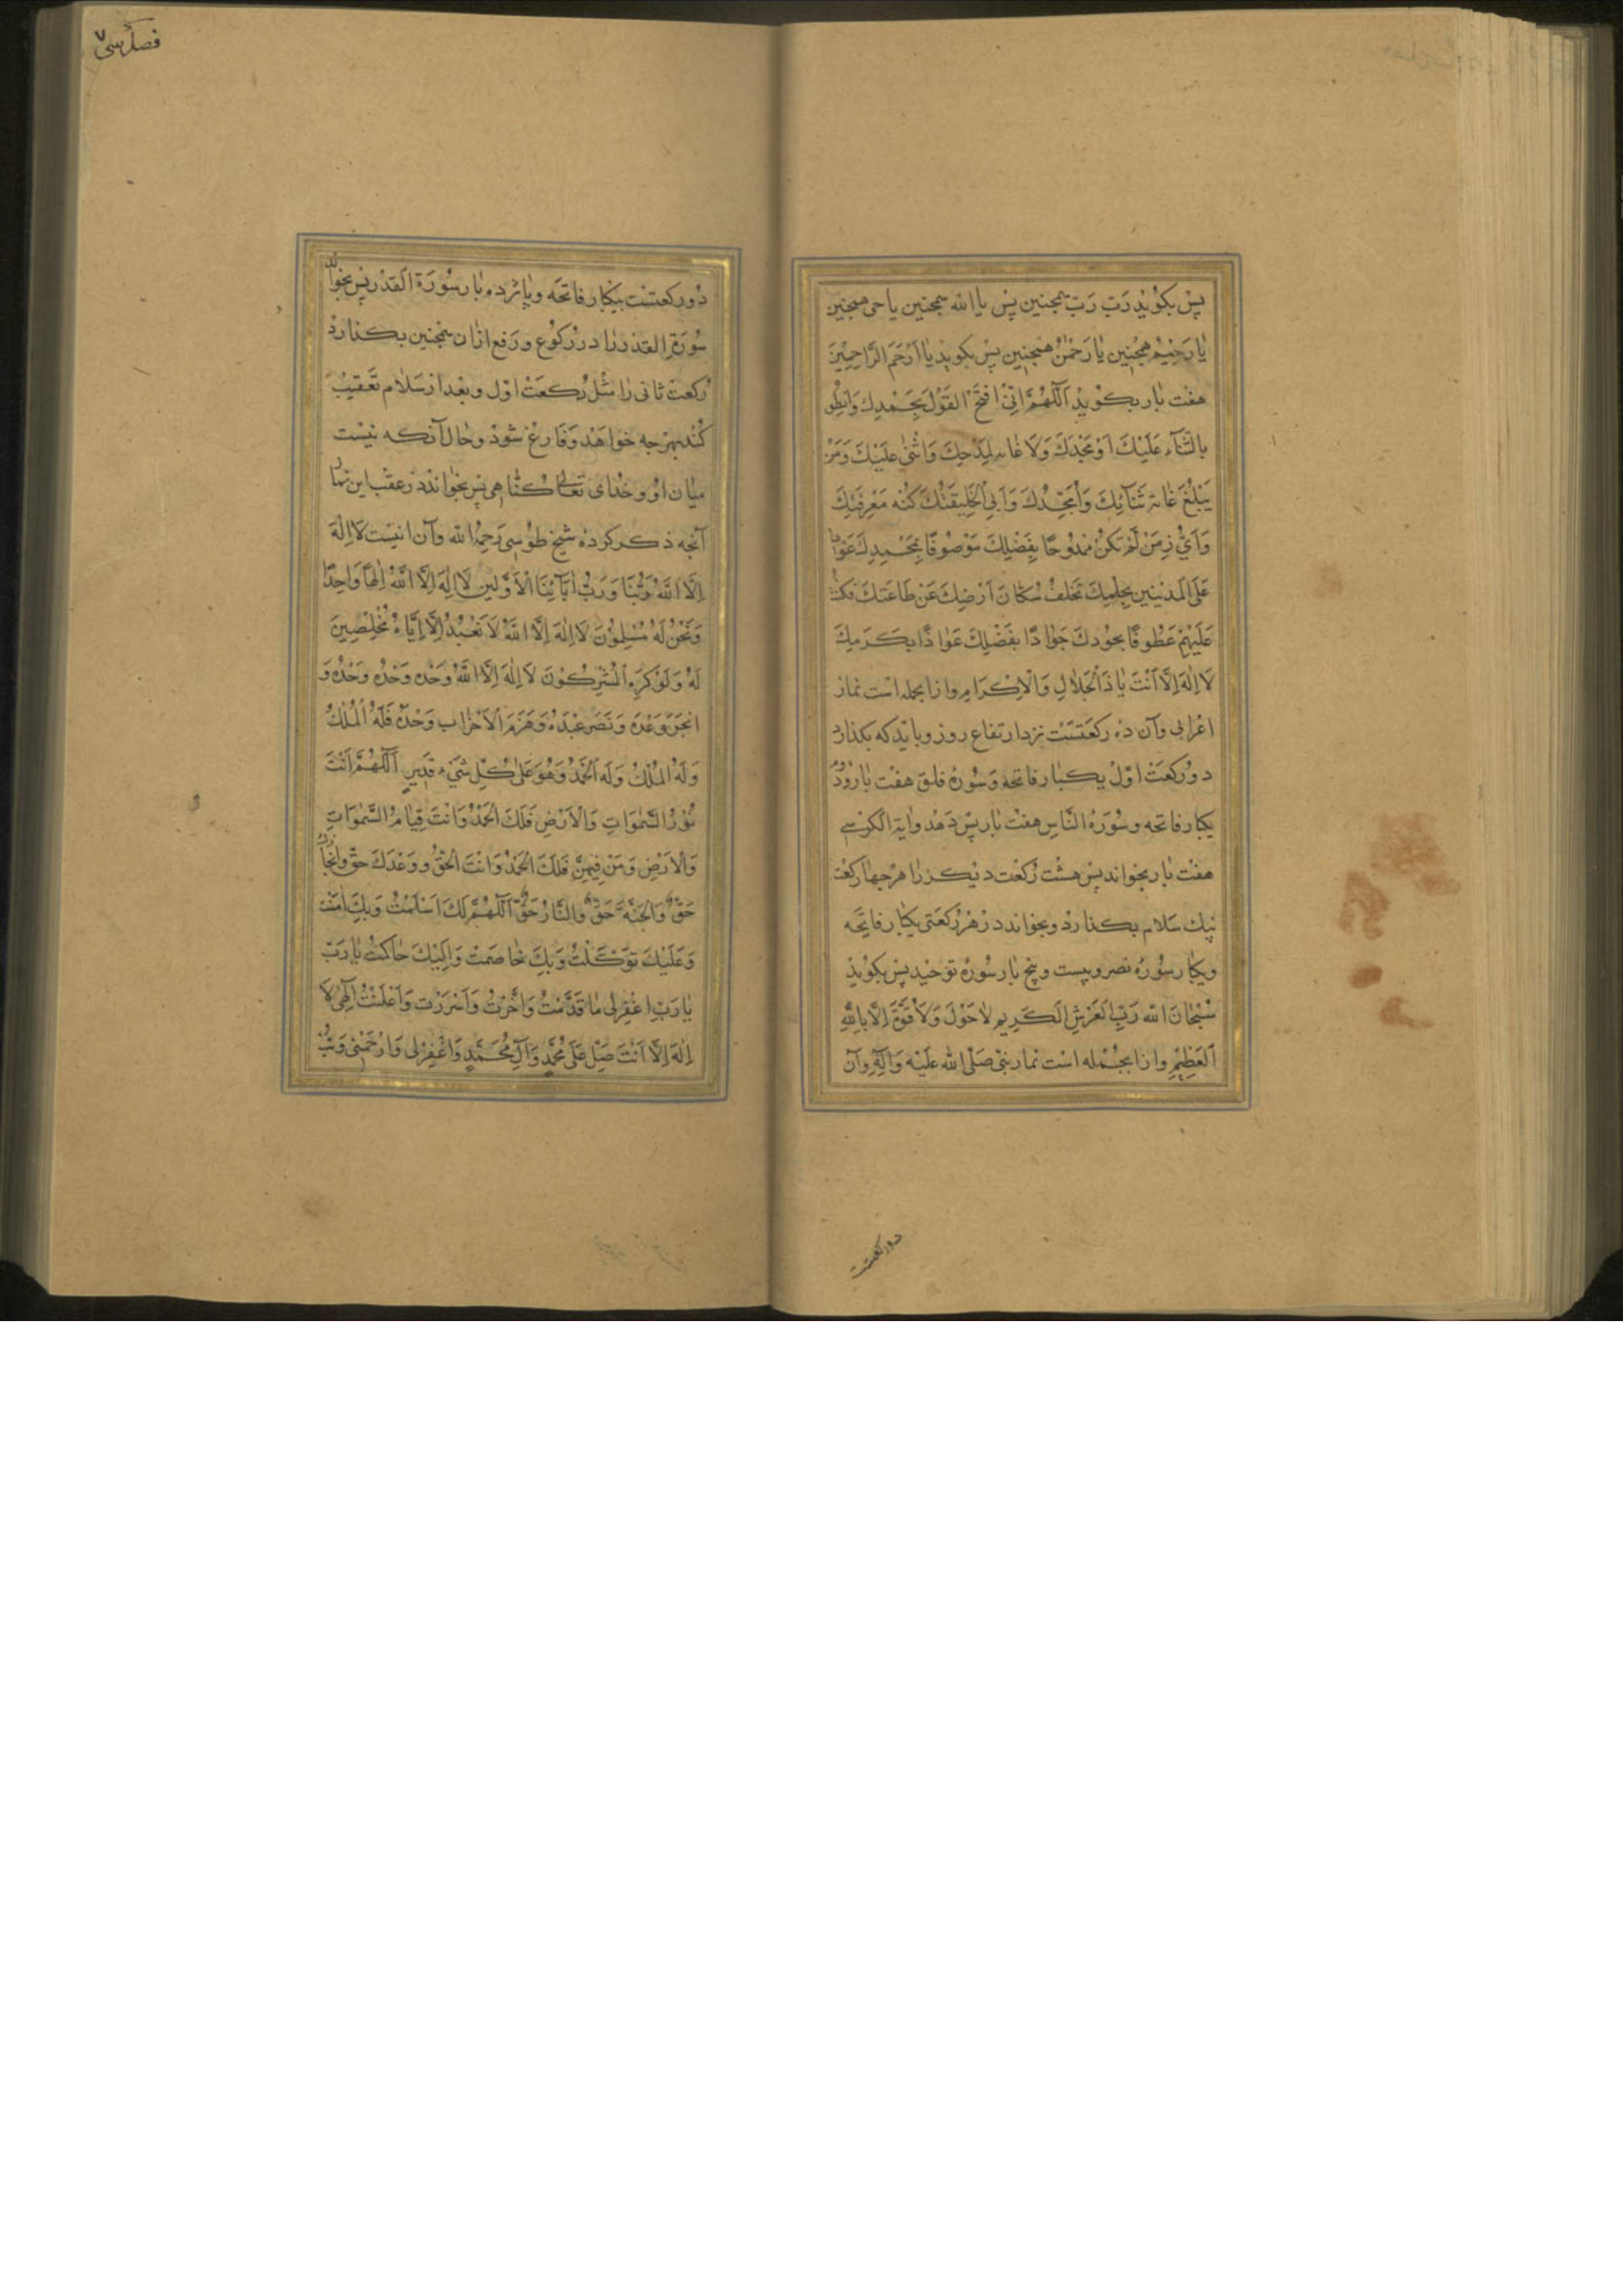 پس بکوید رَبّ رَبّ همچنین پس یا الله همچنین یا حی همچنین
یا رَحیمُ همچنین یا رَحمٰنُ همچنین پس بکوید یا اَرْحَمَ الرَّاحِمِینَ
هفت بار بکوید اَللّهُمَّ اِنّی افتَحُ القَوْلَ بِحَمْدِكَ وَانطِقُ
بالثَّنَاءِ عَلَیْكَ اَوْ مَجِّدُكَ وَلَا غایه لِمَدْحِكَ وَاثْنی عَلَیْكَ وَمَنْ
یَبْلُغَ غایه ثَنَآئِكَ وَاُمَجِّدُكَ وَاَنّی لِخَلیقَتِكَ کُنْه مَعْرِفَتِكَ
وَاَیُّ زمَن لَمْ تَکُنْ مَمْدُوحًا بِفَضْلِكَ مَوْصُوفًا بِمَجْدِكَ عَوّادًا
عَلَی الْمُذْنِبین بِحِلْمِكَ تَخَلَّفَ سُکّانَ اَرْضِكَ عَنْ طَاعَتِكَ فکنت
عَلَیْهِمْ عَطُوفًا بجُودِكَ جَوادًا بِفَضْلِكَ عَوّادًا بِکَرَمِكَ
لَا اِلٰهَ اِلَّا اَنْتَ یَا ذَا الْجَلالِ وَالْاِکْرَامِ وازانجمله است نماز
اعرابی وآن ده رکعتست نزد ارتفاع روز وباید که بکذارد
دو رکعت اوّل یکبار فاتحه وسُوره فلق هفت بار ودوم
یکبار فاتحه وسُوره النَّاس هفت بار پس دهد وایة الکرسے
هفت بار بخواند پس هشت رکعت دیکر را هر چهار رکعت
بیك سَلام بکذارد وبخواند در هر رکعتی یکبار فاتحه
ویکبار سُوره نصر وبیست وپنج بار سُوره توحید پس بکوید
سُبْحَانَ الله رَبِّ الْعَرْشِ الْکَرِیمِ لَا حَوْلَ وَلَا قُوَّةَ اِلَّا بِاللهِ
الْعَظِیْمِ وازانجمله است نماز نبی صَلّی الله عَلَیْه وَآلِه وآن
دورکعتست
فصل سی ۷
دو رکعتست یکبار فاتحه وپانزده بار سُورَة القدر پس بخواند
سُورَة القدر را در رکوع ورفع ازان همچنین بکذارد
رکعت ثانی را مثل رکعت اوّل وبعد از سَلام تَعقیب
کند بهرچه خواهد وفارغ شود وحال آنکه نیست
میان او وخدای تعالی کناهی پس بخواند در عقب این نماز
آنچه ذکر کرده شیخ طوسی رَحِمَهُ الله وآن اینست لا اِلهَ
اِلَّا اللهُ رَبُّنَا وَرَبُّ اٰبآئِنَا الْاَوَّلین لَا اِلهَ اِلَّا اللهُ اِلٰهًا وَاحِدًا
وَنَحْنُ لَهُ مُسْلِمُونَ لَا اِلٰهَ اِلَّا اللهُ لَا نَعْبُدُ اِلَّا اِیَّاهُ مُخْلِصِینَ
لَهُ وَلَوْ کَرِهَ الْمُشْرِکُونَ لَا اِلٰهَ اِلَّا اللهُ وَحْدَهُ وَحْدَهُ وَحْدَهُ وَ
انْجَزَ وَعْدَهُ وَنَصَرَ عَبْدَهُ وَهَزَمَ الْاَحْزَاب وَحْدَهُ فَلَهُ الْمُلْكُ
وَلَهُ الْمُلْكُ وَلَهُ الْحَمْدُ وَهُوَ عَلٰی کُلِّ شَیْءٍ قَدِیرٍ اَللّهُمَّ اَنْتَ
نُورُ السَّمٰوَاتِ وَالْاَرْضِ فَلَكَ الْحَمْدُ وَانْتَ قِیَامُ السَّمٰوَاتِ
وَالْاَرْضِ وَمَنْ فِیهِنَّ فَلَكَ الْحَمْدُ وَانْتَ الْحَقُّ ووَعْدَكَ حَقّ وانجازك
حَقّ وَالْجَنَّة حَقّ وَالنَّارُ حَقّ اَللّهُمَّ لَكَ اَسْلَمْتُ وَبِكَ اٰمَنْتُ
وَعَلَیْكَ تَوَکَّلْتُ وَبِكَ خَاصَمْتُ وَاِلَیْكَ حَاکَمْتُ یا رَبّ
یا رَبِّ اغْفِرْلی مَا قَدَّمْتُ وَاَخَّرْتُ وَاَسْرَرْتُ وَاَعْلَنْتُ اِلٰهی لا
اِلهَ اِلَّا اَنْتَ صَلِّ عَلٰی مُحَمَّدٍ وَآلِ مُحَمَّدٍ وَاغْفِرْلی وَارْحَمْنی وَتُبْ